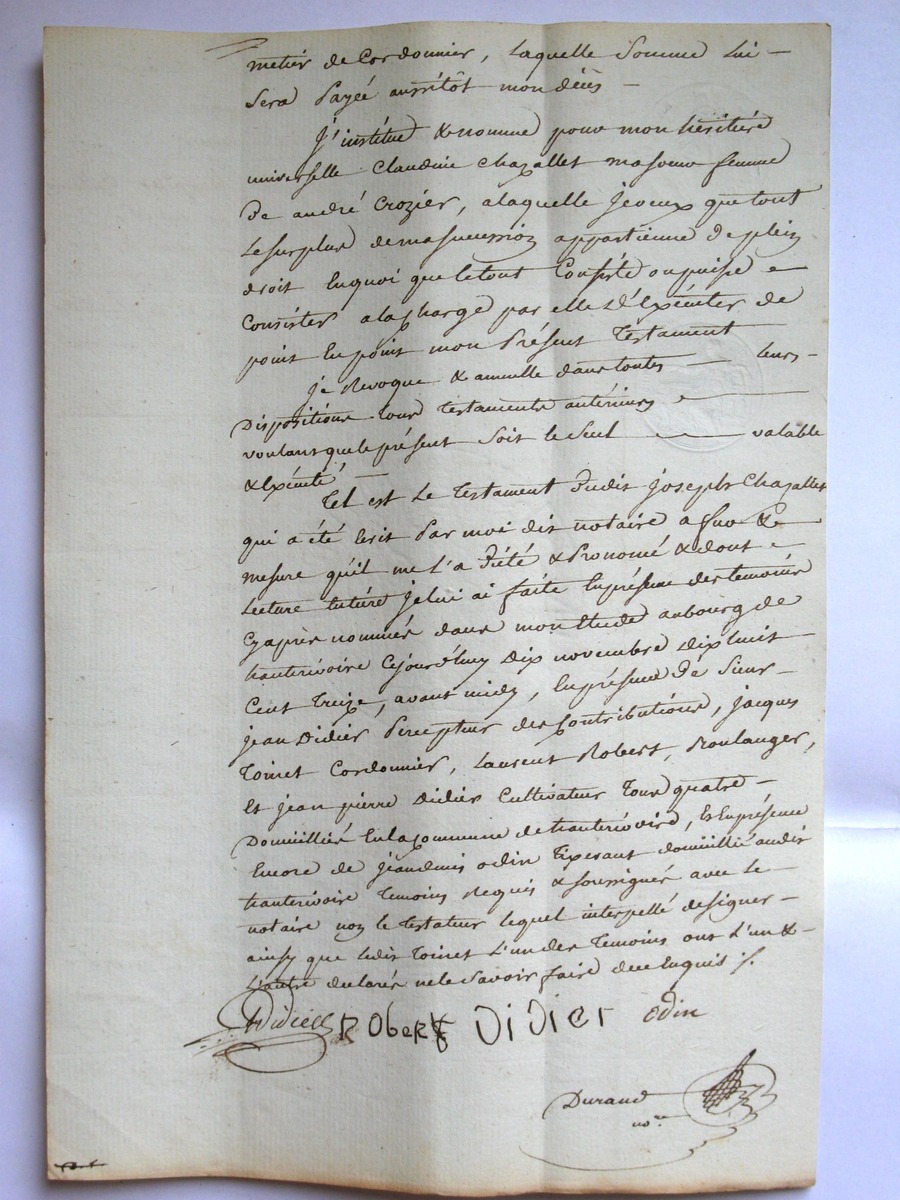 metier de Cordonnier, laquelle Somme lui —
Sera Payée aussitôt mon décès —
J'institue & nomme pour mon héritiére
universelle Claudine Chazallet ma soeur femme
De andré Crozier, a laquelle je veux que tout
Le surplus de ma succession appartienne De plein
droit En quoi que le tout Consiste ou puisse
Consister a la charge par elle D'Exécuter de
point En point mon Présent Testament
Je Revoque & annulle dans toutes leurs
Dispositions tous Testaments antérieurs
voulant que le présent Soit le Seul valable
& Exécuté
Tel est Le Testament Dudit Joseph Chazallet
qui a été Ecrit Par moi dit notaire a fur &
mesure qu'il me l'a Dicté & Prononcé & dont
Lecture Entiére je lui ai faite En présence des temoins
Cy après nommés dans mon Etude au bourg de
hauterivoire Cejourd'huy Dix novembre Dix huit
Cent Treize, avant midy, En présence De Sieur
jean Didier Percepteur des Contributions, jacques
Toinet Cordonnier, Laurent Robert, Boulanger,
Et jean pierre Didier Cultivateur Tous quatre
Domicilliés En la Commune de hauterivoire, Et En présence
Encore de jean denis odin Tixerant domicillié audit
hauterivoire Temoins Requis & soussignés avec Le
notaire non le testateur lequel interpellé de signer
ainsy que ledit Toinet L'un des Temoins ont L'un &
L'autre déclarés ne le Savoir faire de ce Enquis ./.
Didier RoberT DiDier Odin
Durand
no.re